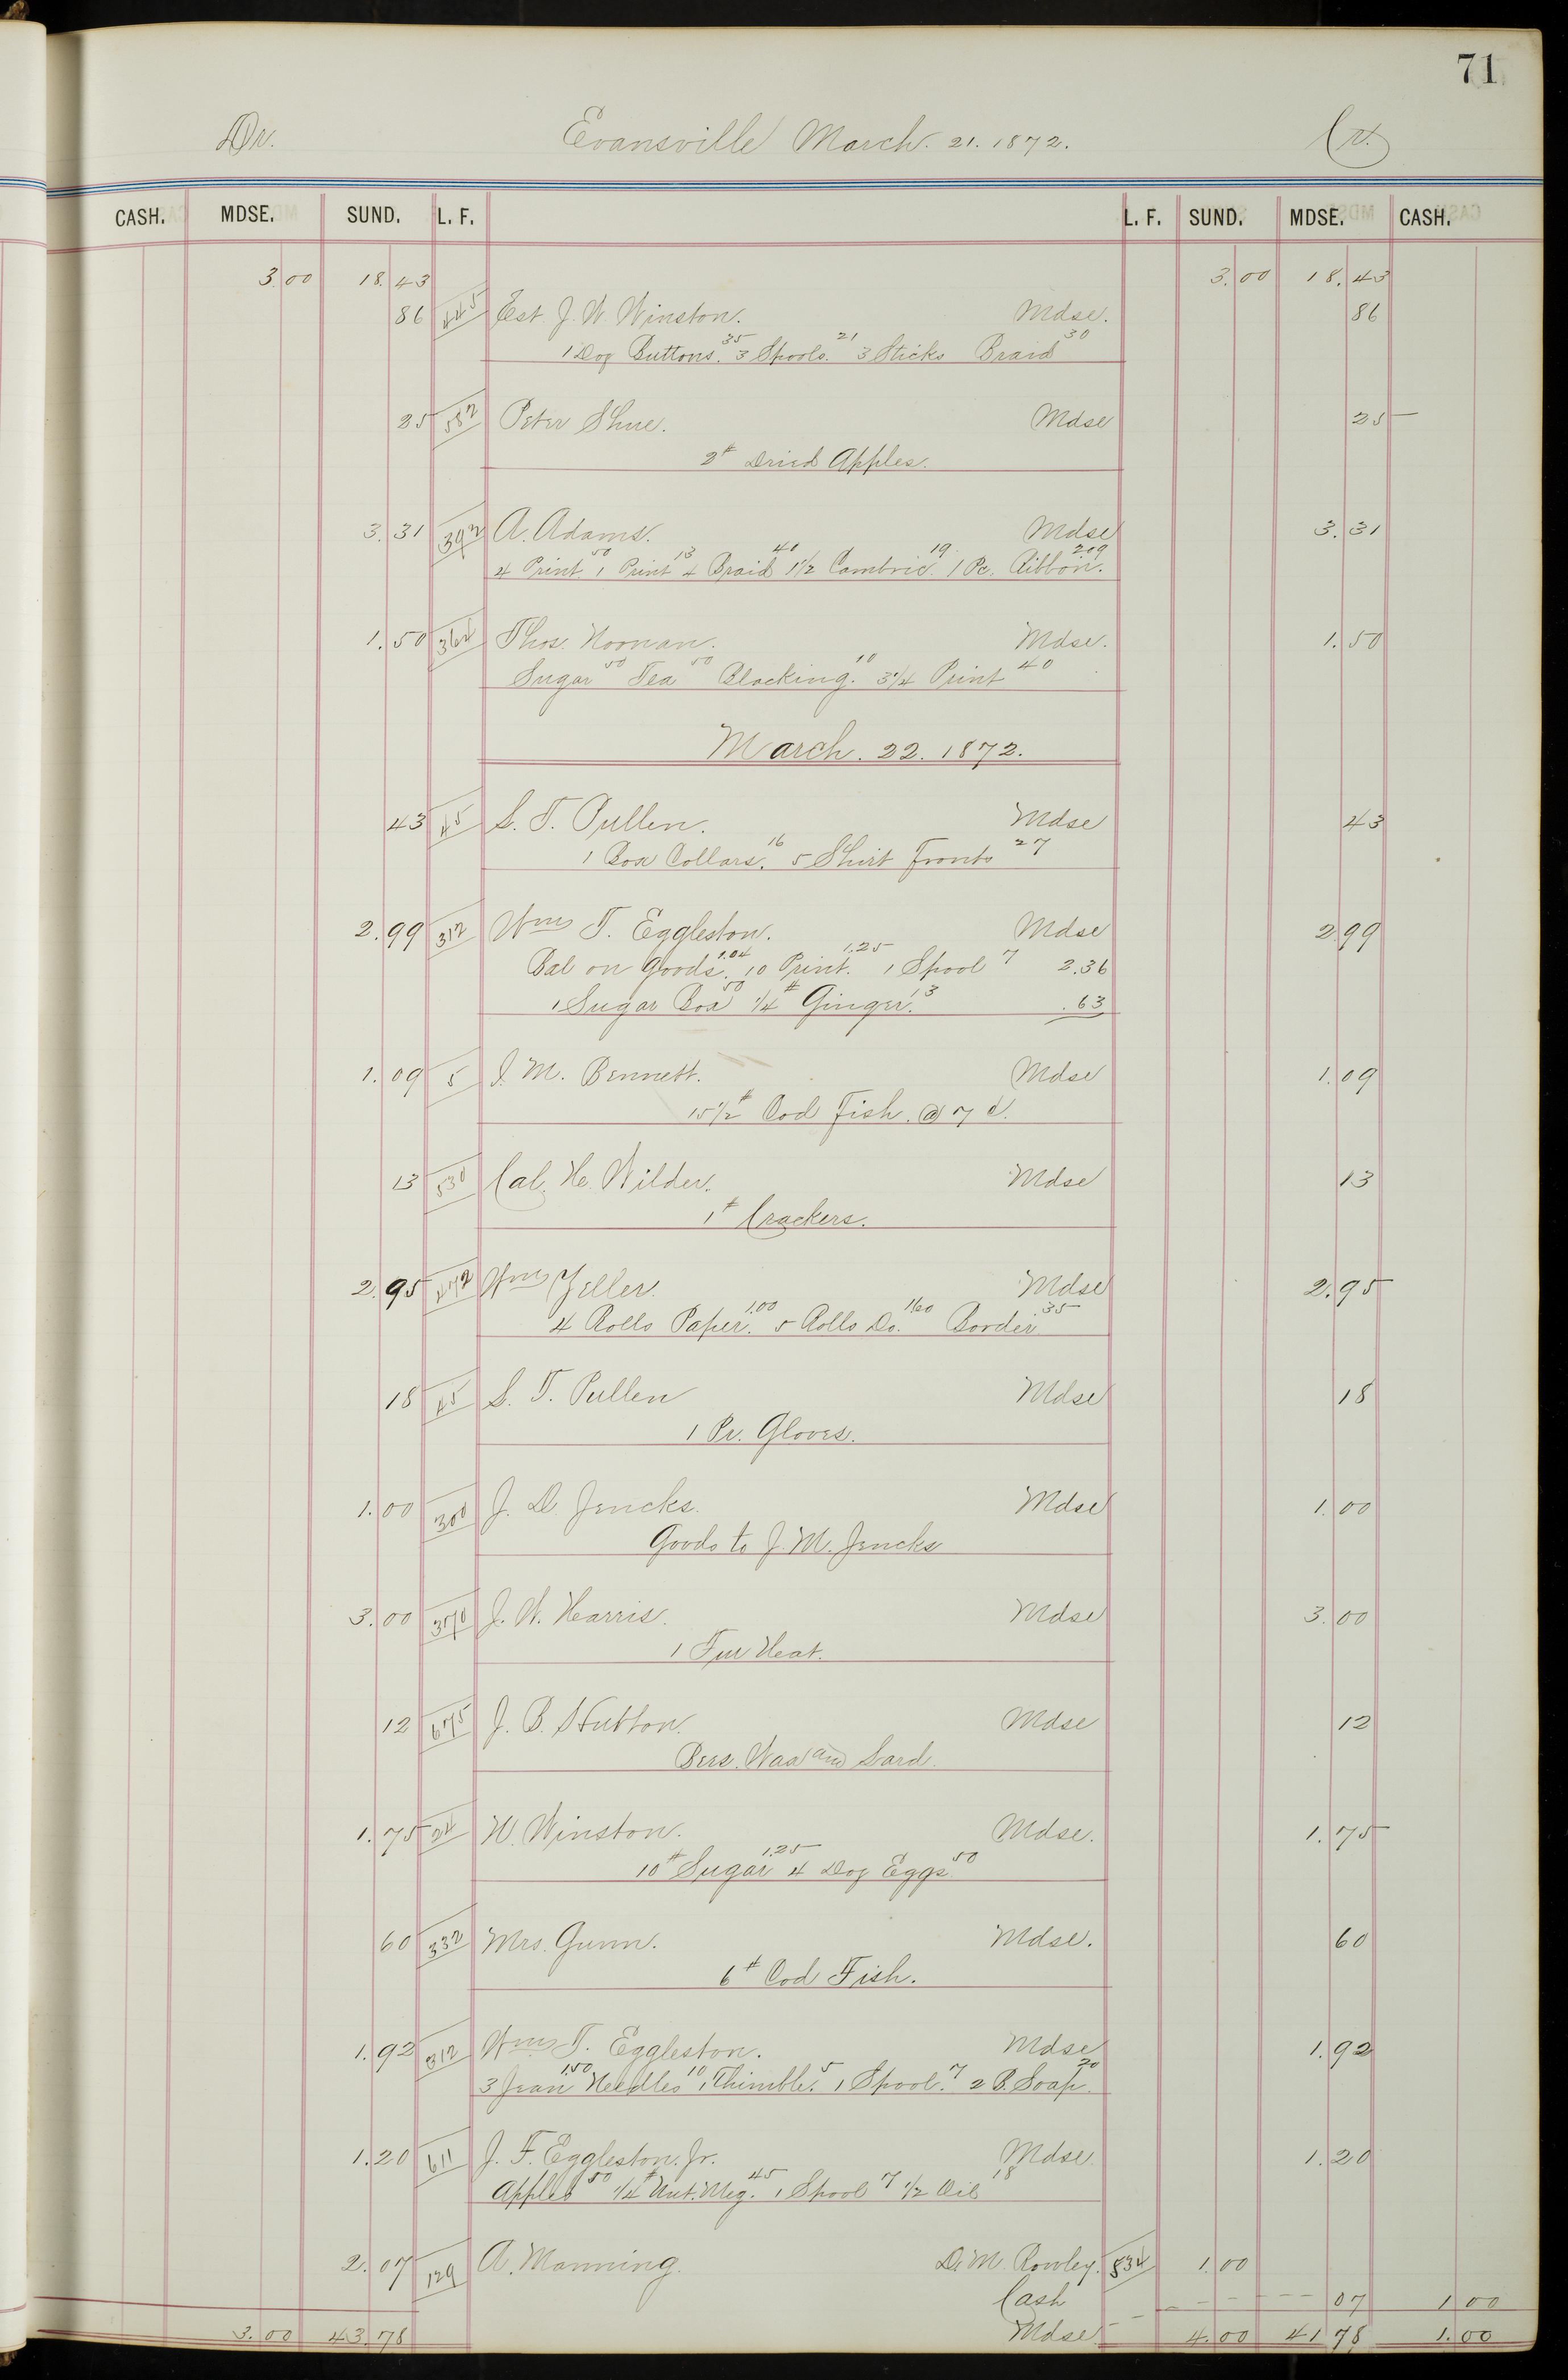 71
Dr. Evansville March. 21. 1872. Cr.
CASH. MDSE. SUND. L. F. L. F. SUND. MDSE. CASH.
3.00 18.43 3.00 18.43
86 445 Est J. W. Winston. Mdse. 86
1 Doz Buttons. 35 3 Spools. 21 3 Sticks Braid 30
25 582 Peter Shue. Mdse 25
2# Dried Apples.
3.31 392 A. Adams. Mdse 3.31
4 Print. 50 1 Print 13 4 Braid 40 1 1/2 Cambric. 19 1 Pc. Ribbon. 209
1.50 364 Thos. Noonan. Mdse. 1.50
Sugar 50 Tea 50 Blacking. 10 3 1/4 Print 40
March. 22. 1872.
43 45 S. T. Pullen. Mdse 43
1 Box Collars. 16 5 Shirt Fronts 27
2.99 312 Wm T. Eggleston. Mdse 2.99
Bal on Goods. 1.04 10 Print. 1.25 1 Spool 7 2.36
1 Sugar Box 50 1/4# Ginger. 13 .63
1.09 5 J. M. Bennett. Mdse 1.09
15 1/2# Cod Fish. @ 7 c.
13 530 Cal. H. Wilder. Mdse 13
1# Crackers.
2.95 472 Wm Zeller. Mdse 2.95
4 Rolls Paper. 1.00 5 Rolls Do. 1.60 Border 35
18 45 S. T. Pullen Mdse 18
1 Pr. Gloves.
1.00 300 J. D. Jencks. Mdse 1.00
Goods to J. M. Jencks
3.00 370 J. W. Harris. Mdse 3.00
1 Fur Hat.
12 675 J. B. Hutton. Mdse 12
Bees. Wax and Lard.
1.75 24 W. Winston. Mdse. 1.75
10# Sugar 1.25 4 Doz Eggs 50
60 332 Mrs. Gunn. Mdse. 60
6# Cod Fish.
1.92 312 Wm T. Eggleston. Mdse 1.92
3 Jean 1.50 Needles 10 1 Thimble. 5 1 Spool. 7 2 B. Soap. 20
1.20 611 J. F. Eggleston. Jr. Mdse. 1.20
Apples 50 1/4# Nut. Meg. 45 1 Spool 7 1/2 Oil 18
2.07 129 A. Manning. D. M. Rowley. 534 1.00
Cash 07 1.00
3.00 43.78 Mdse. 4.00 41 78 1.00